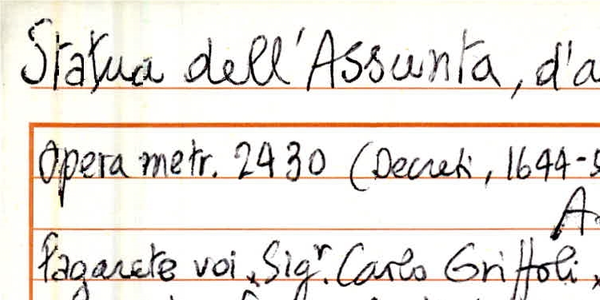 Statua dell'Assunta, d'a
Opera metr. 2430 (Decreti, 1644-5
A
Pagarete voi, Sigr. Carlo Griffoli,